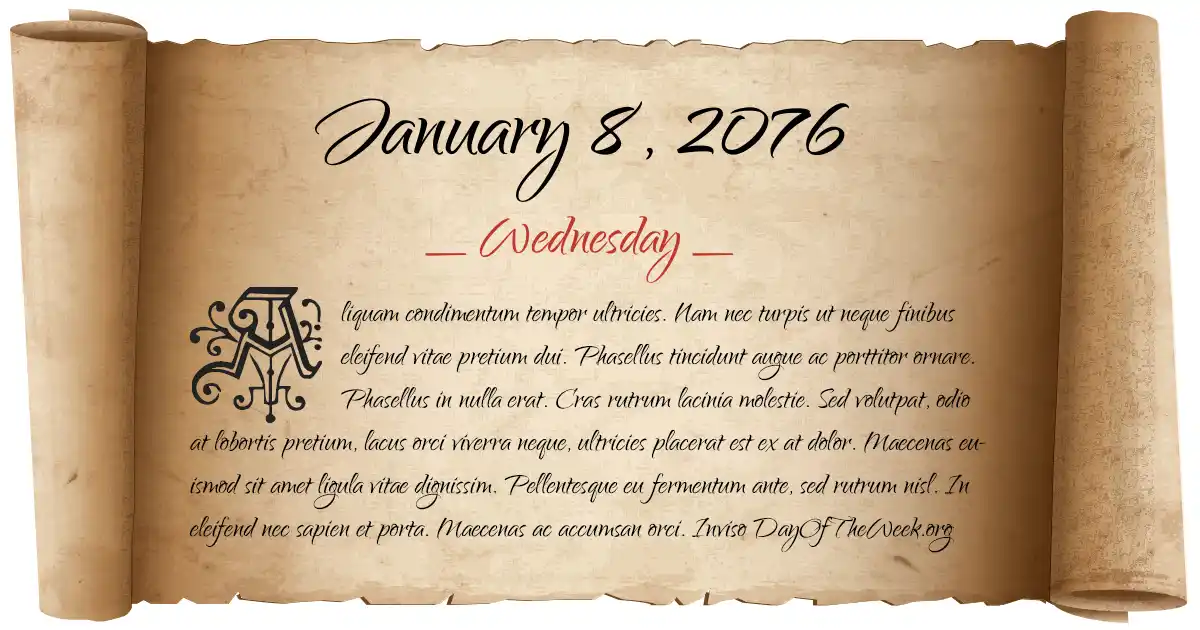 January 8, 2076
Wednesday
Aliquam condimentum tempor ultricies. Nam nec turpis ut neque finibus
eleifend vitae pretium dui. Phasellus tincidunt augue ac porttitor ornare.
Phasellus in nulla erat. Cras rutrum lacinia molestie. Sed volutpat, odio
at lobortis pretium, lacus orci viverra neque, ultricies placerat est ex at dolor. Maecenas eu-
ismod sit amet ligula vitae dignissim. Pellentesque eu fermentum ante, sed rutrum nisl. In
eleifend nec sapien et porta. Maecenas ac accumsan orci. Inviso DayOfTheWeek.org